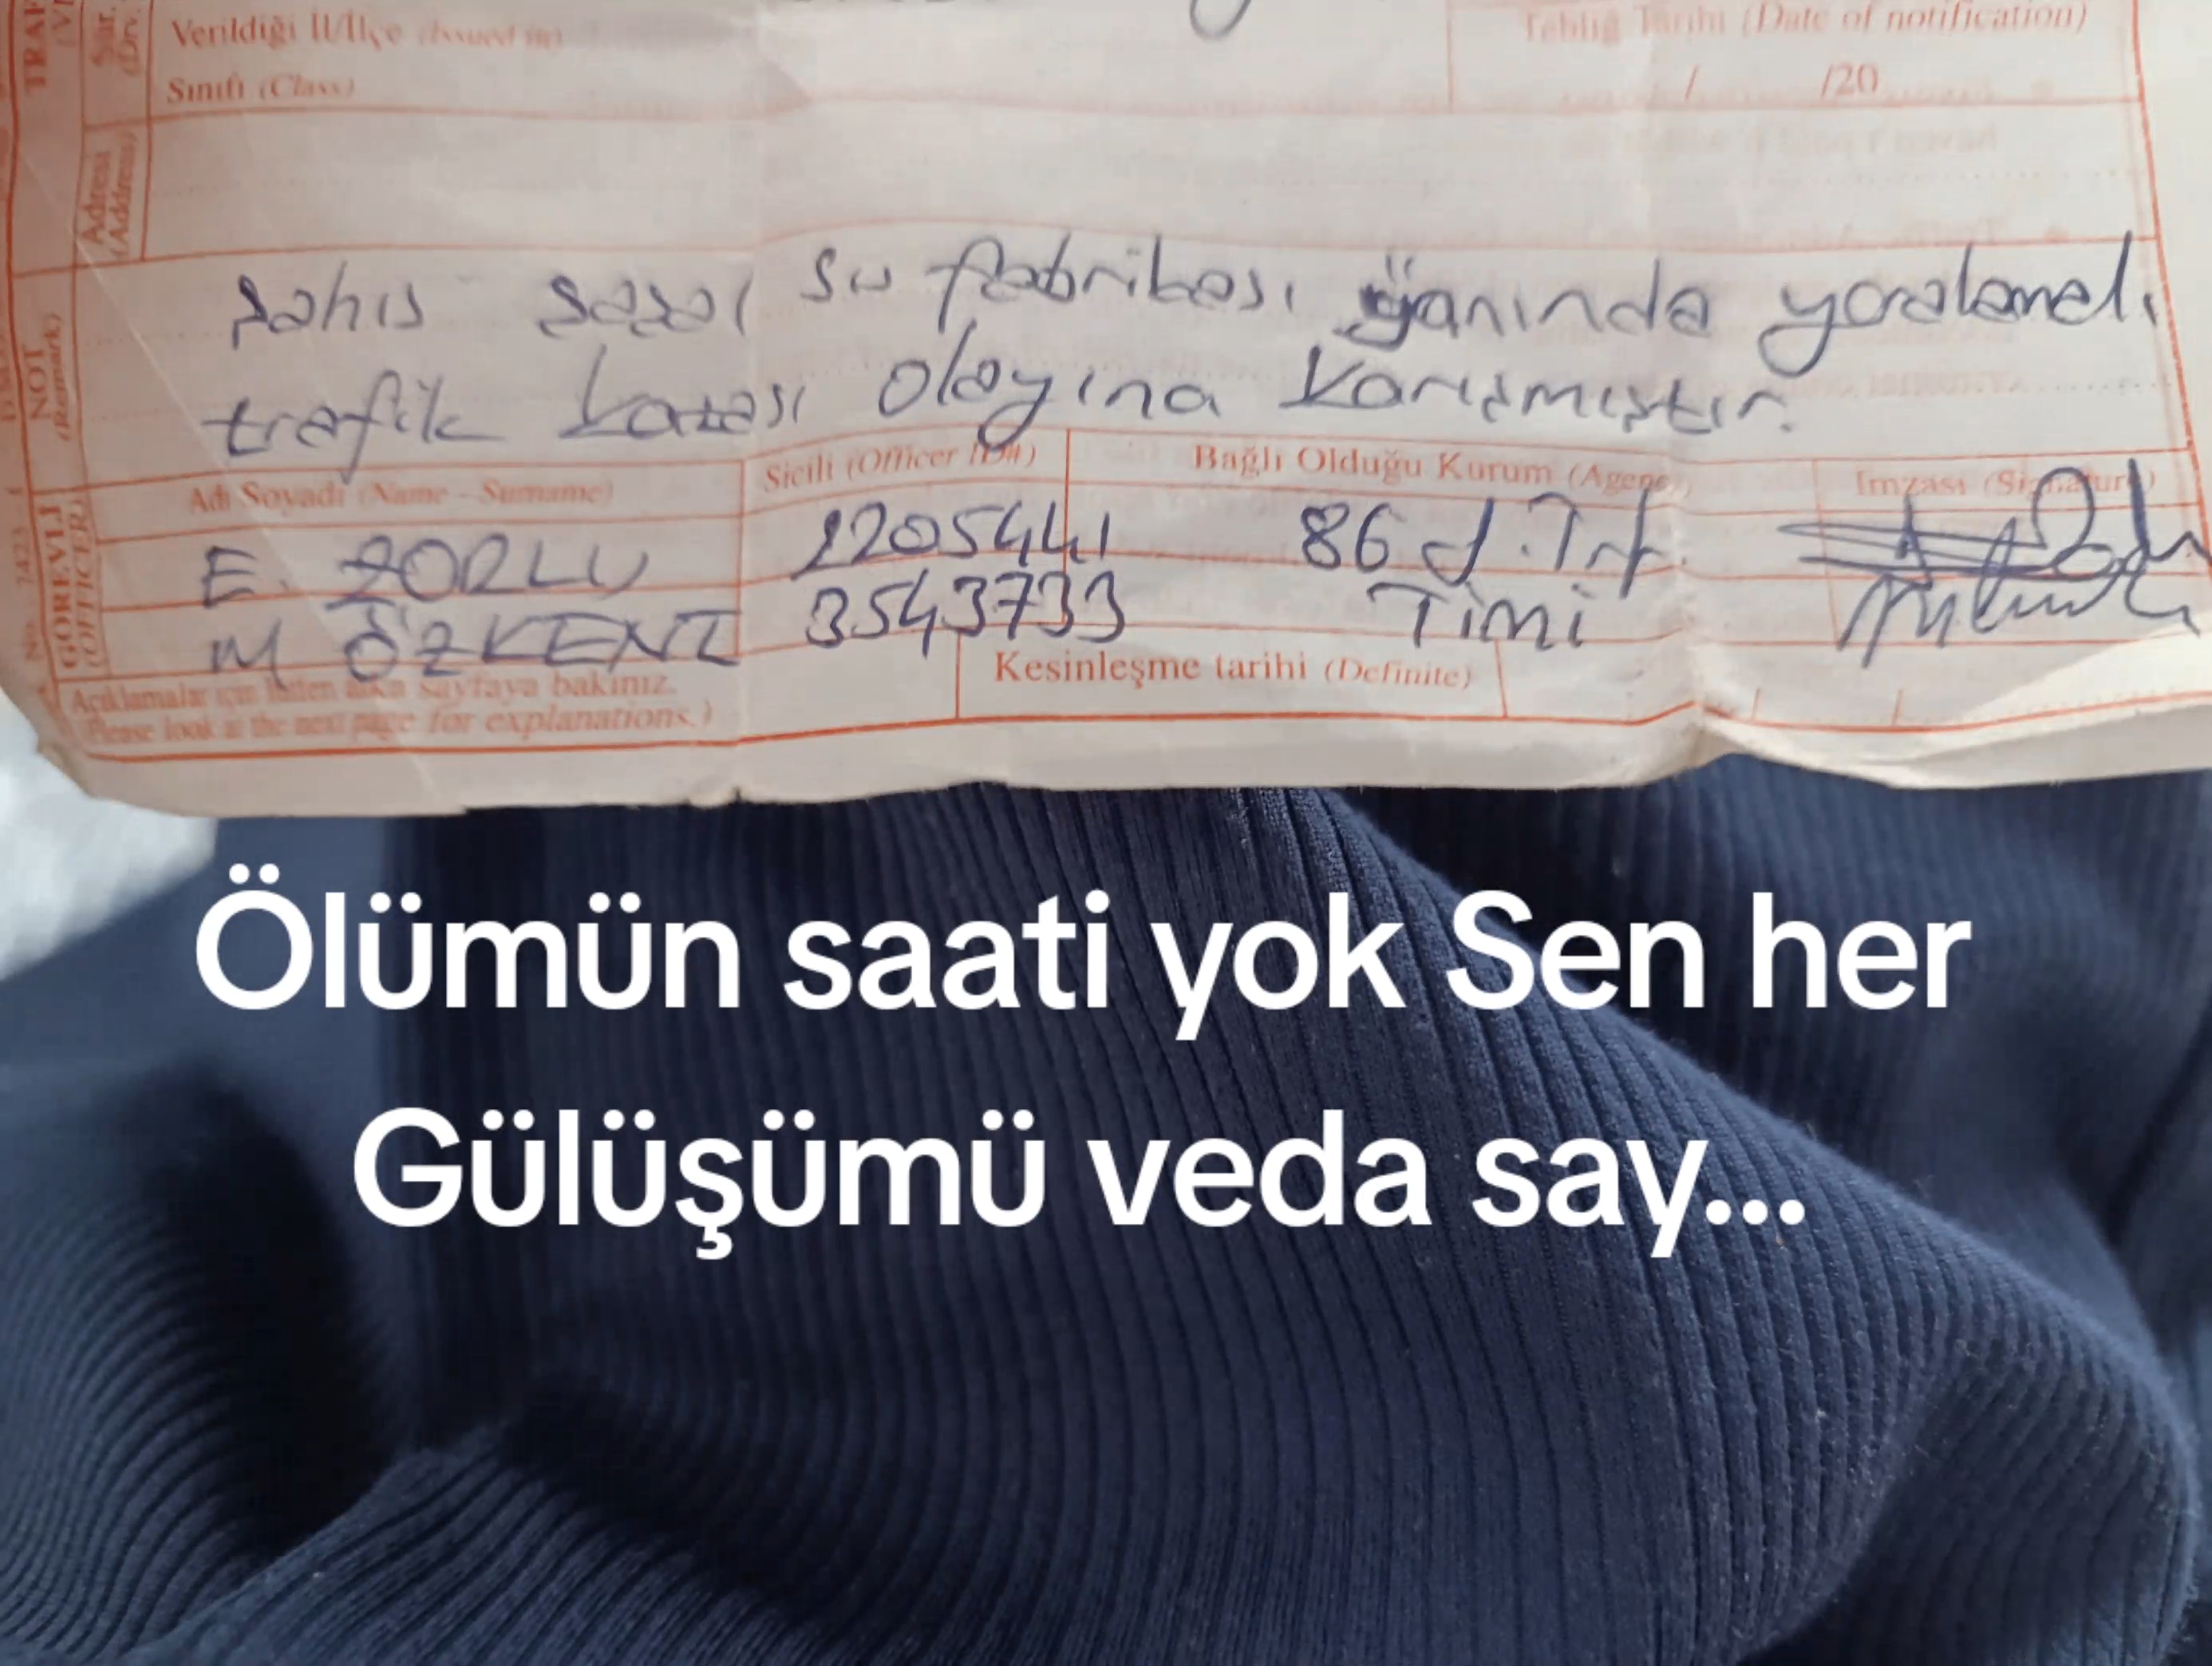 Verildiği İl/İlçe (Issued in)
Tebliğ Tarihi (Date of notification)
Sınıfı (Class)
/ /20
Adresi
(Address)
şahıs şaşal su fabrikası yanında yaralamalı
trafik kazası olayına karışmıştır.
NOT
(Remark)
Adı Soyadı (Name - Surname)
Sicili (Officer ID#)
Bağlı Olduğu Kurum (Agency)
İmzası (Signature)
GÖREVLİ
(OFFICER)
E. ZORLU 2205441 86 J.Trf.
M ÖZKENT 3543733 Timi
Açıklamalar için lütfen arka sayfaya bakınız.
Please look at the next page for explanations.)
Kesinleşme tarihi (Definite)
Ölümün saati yok Sen her
Gülüşümü veda say...